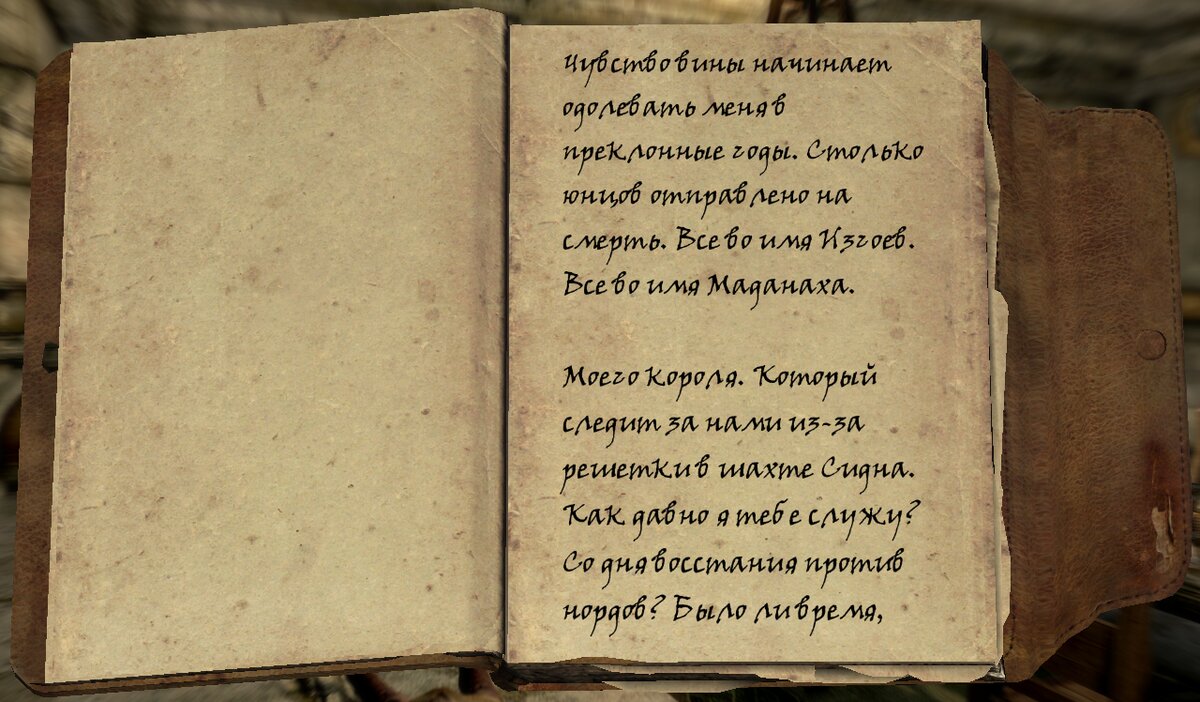 Чувство вины начинает
одолевать меня в
преклонные годы. Столько
юнцов отправлено на
смерть. Все во имя Изгоев.
Все во имя Маданаха.
Моего короля. Который
следит за нами из-за
решетки в шахте Сидна.
Как давно я тебе служу?
Со дня восстания против
нордов? Было ли время,